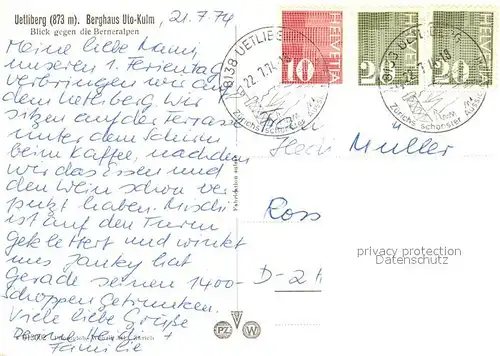 Uetliberg (873 m). Berghaus Uto-Kulm
Blick gegen die Berneralpen
21.7.74
Meine liebe Mami,
unseren 1. Ferientag
verbringen wir auf
dem Uetliberg. Wir
sitzen auf der Terrasse
unter dem Schirm
beim Kaffee, nachdem
wir das Essen und
den Wein schon ver
putzt haben. Mischi
ist auf den Turm
geklettert und winkt
uns. Janky hat
gerade seinen 1400-
Schoppen getrunken.
Viele liebe Grüße
Deine Heidi +
Familie
8138 UETLIBERG
22.7.74-18
Zürichs schönster Aussichts
HELVETIA
10
8138 UETLIBERG
22.7.74-18
Zürichs schönster Aussichts
HELVETIA
20
HELVETIA
20
Müller
Ross
D-2
privacy protection
Datenschutz
PZ
W